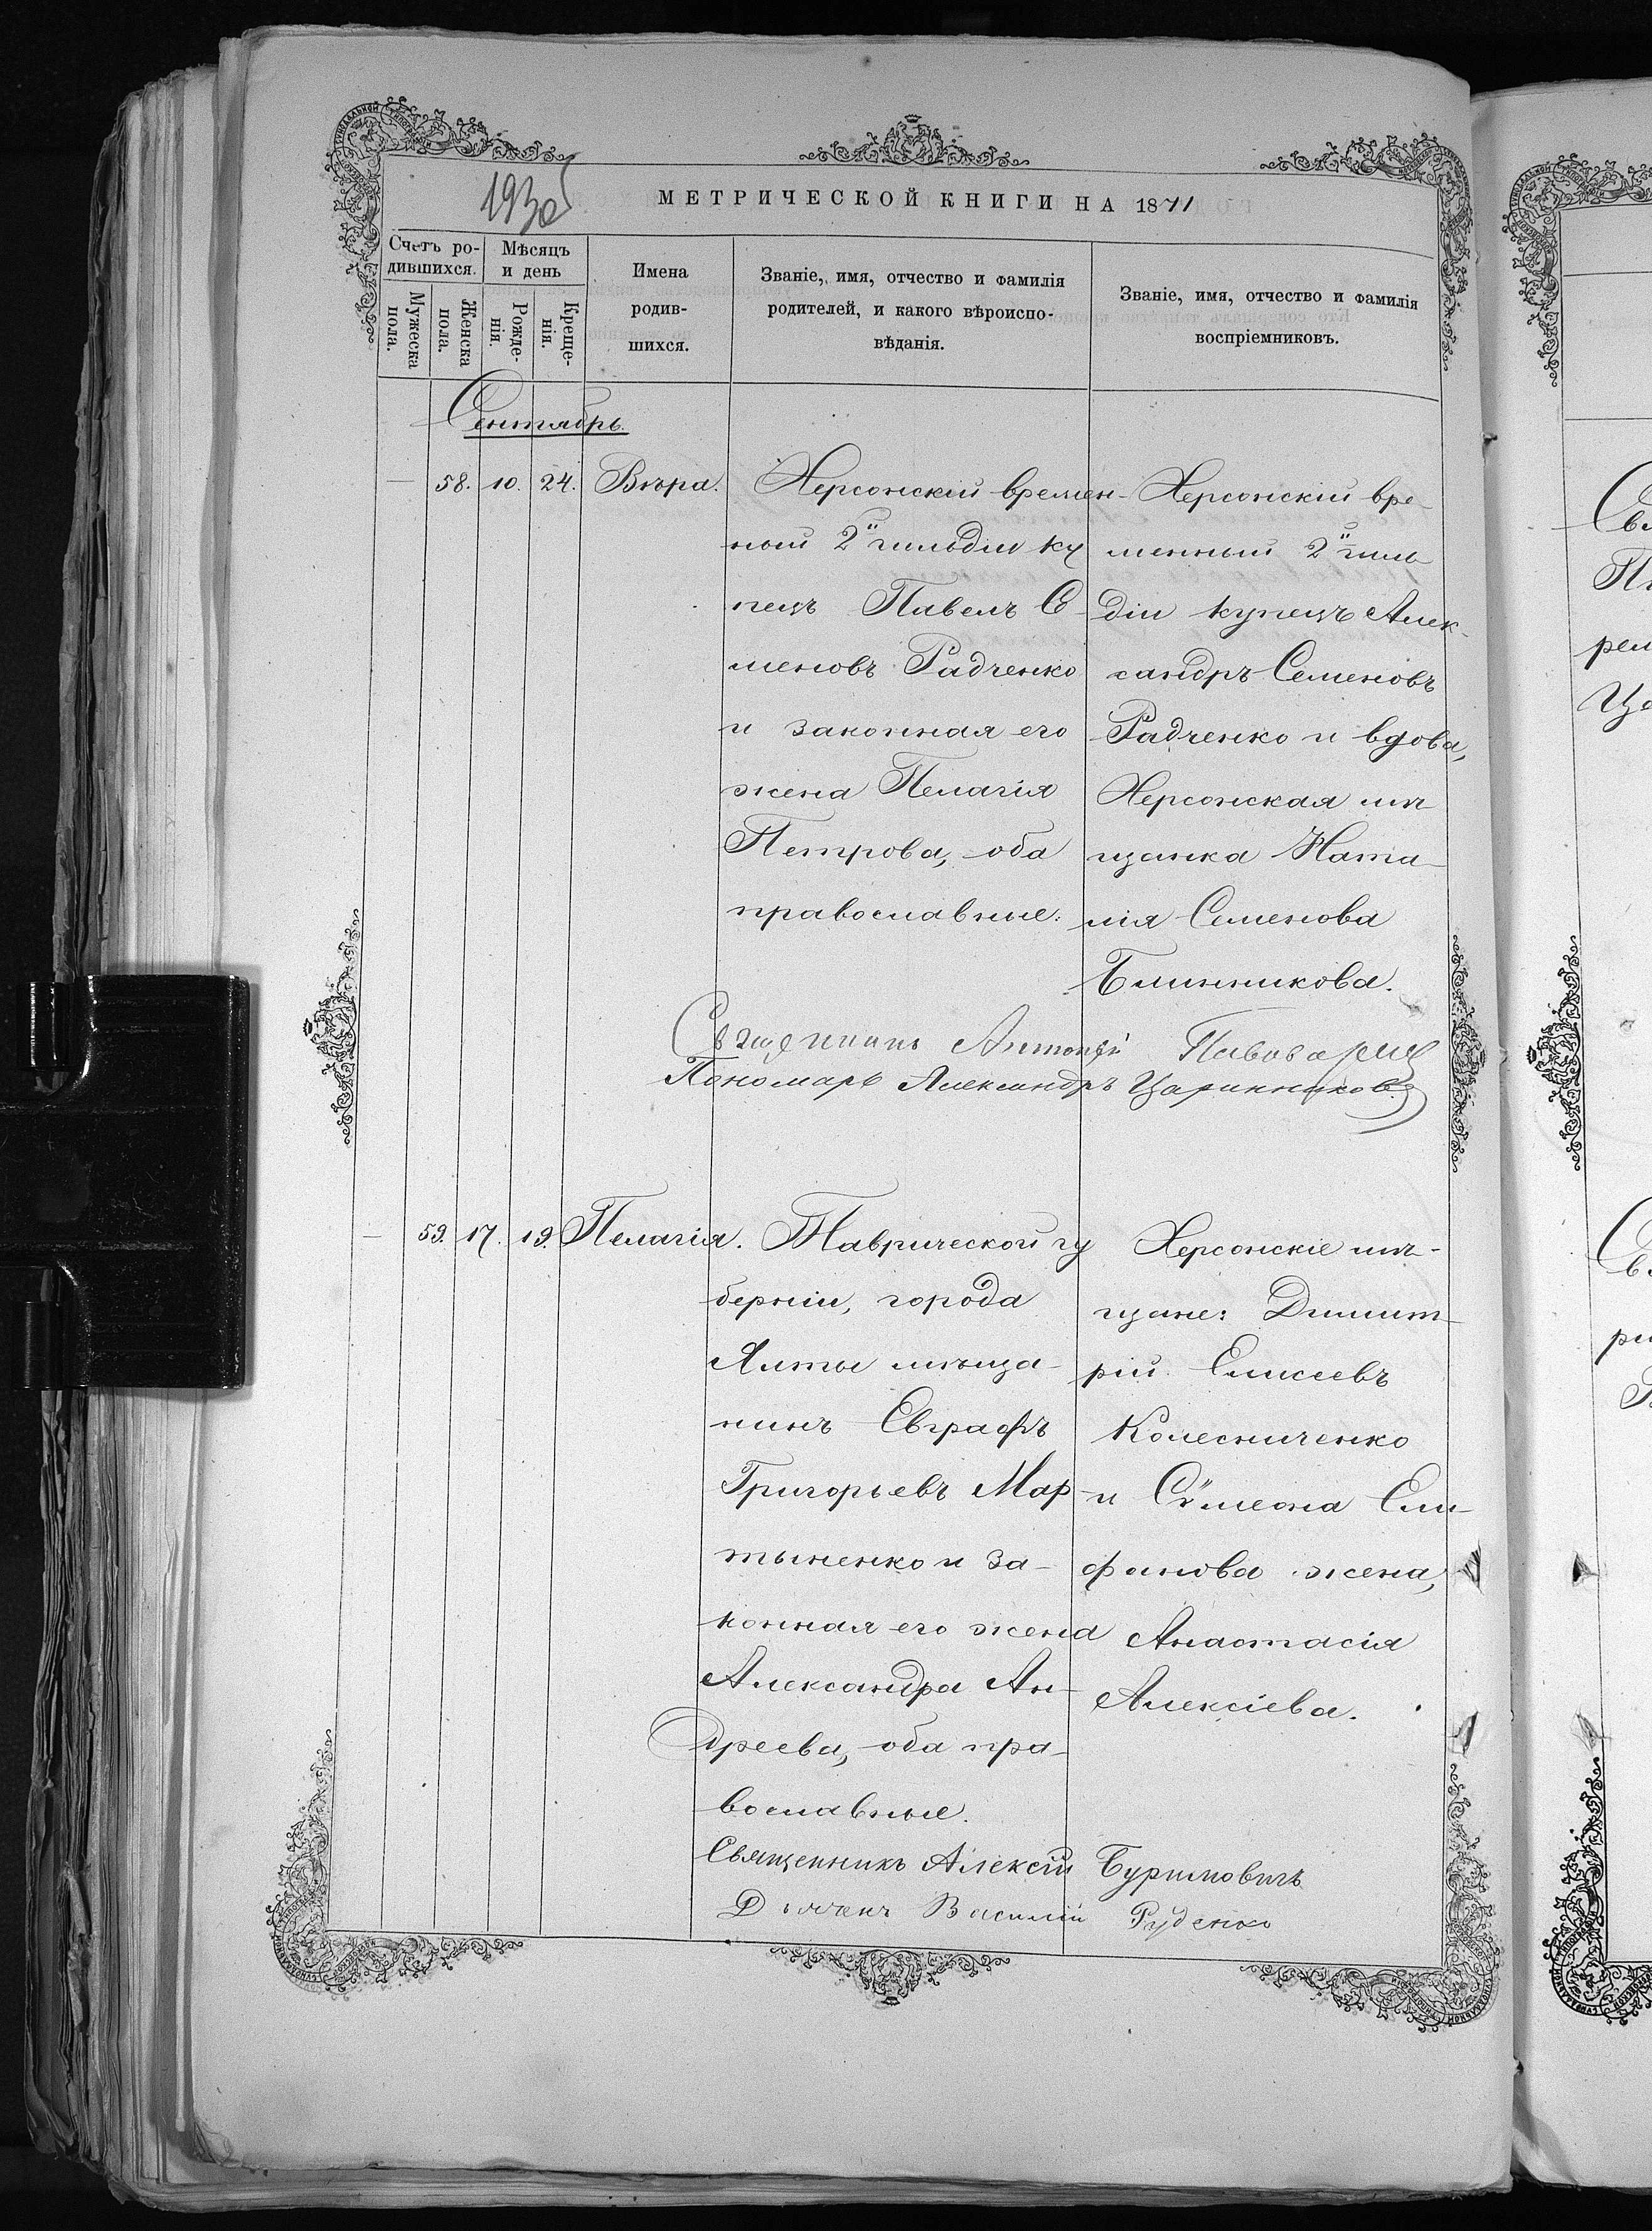 193об
МЕТРИЧЕСКОЙ КНИГИ НА 1871
Счетъ ро-
дившихся.
Мѣсяцъ
и день
Мужеска
пола.
Женска
пола.
Рожде-
нія.
Креще-
нія.
Имена
родив-
шихся.
Званіе, имя, отчество и фамилія
родителей, и какого вѣроиспо-
вѣданія.
Званіе, имя, отчество и фамилія
воспріемниковъ.
Сентябрь.
— 58. 10. 24. Вѣра.
Херсонскій времен-
ный 2й гильдіи ку
пецъ Павелъ Се-
меновъ Радченко
и законная его
жена Пелагія
Петрова, оба
православные.
Херсонскій вре-
менный 2й гиль-
діи купецъ Алек-
сандръ Семеновъ
Радченко и вдова,
Херсонская мѣ
щанка Ната-
лія Семенова
Блинникова.
Священникъ Антоній Пивоваровъ
Пономарь Александръ Царинников
— 59. 17. 19. Пелагія.
Таврической гу
берніи, города
Ялты мѣща-
нинъ Евграфъ
Григорьевъ Мар-
тыненко и за-
конная его жена
Александра Ан-
дреева, оба пра-
вославные.
Херсонскіе мѣ-
щане: Димит-
рій Елисеевъ
Колесниченко
и Сѵмеона Епи-
фанова жена,
Анастасія
Алексіева.
Священникъ Алексій Буримовичъ
Діаконъ Василій Руденко